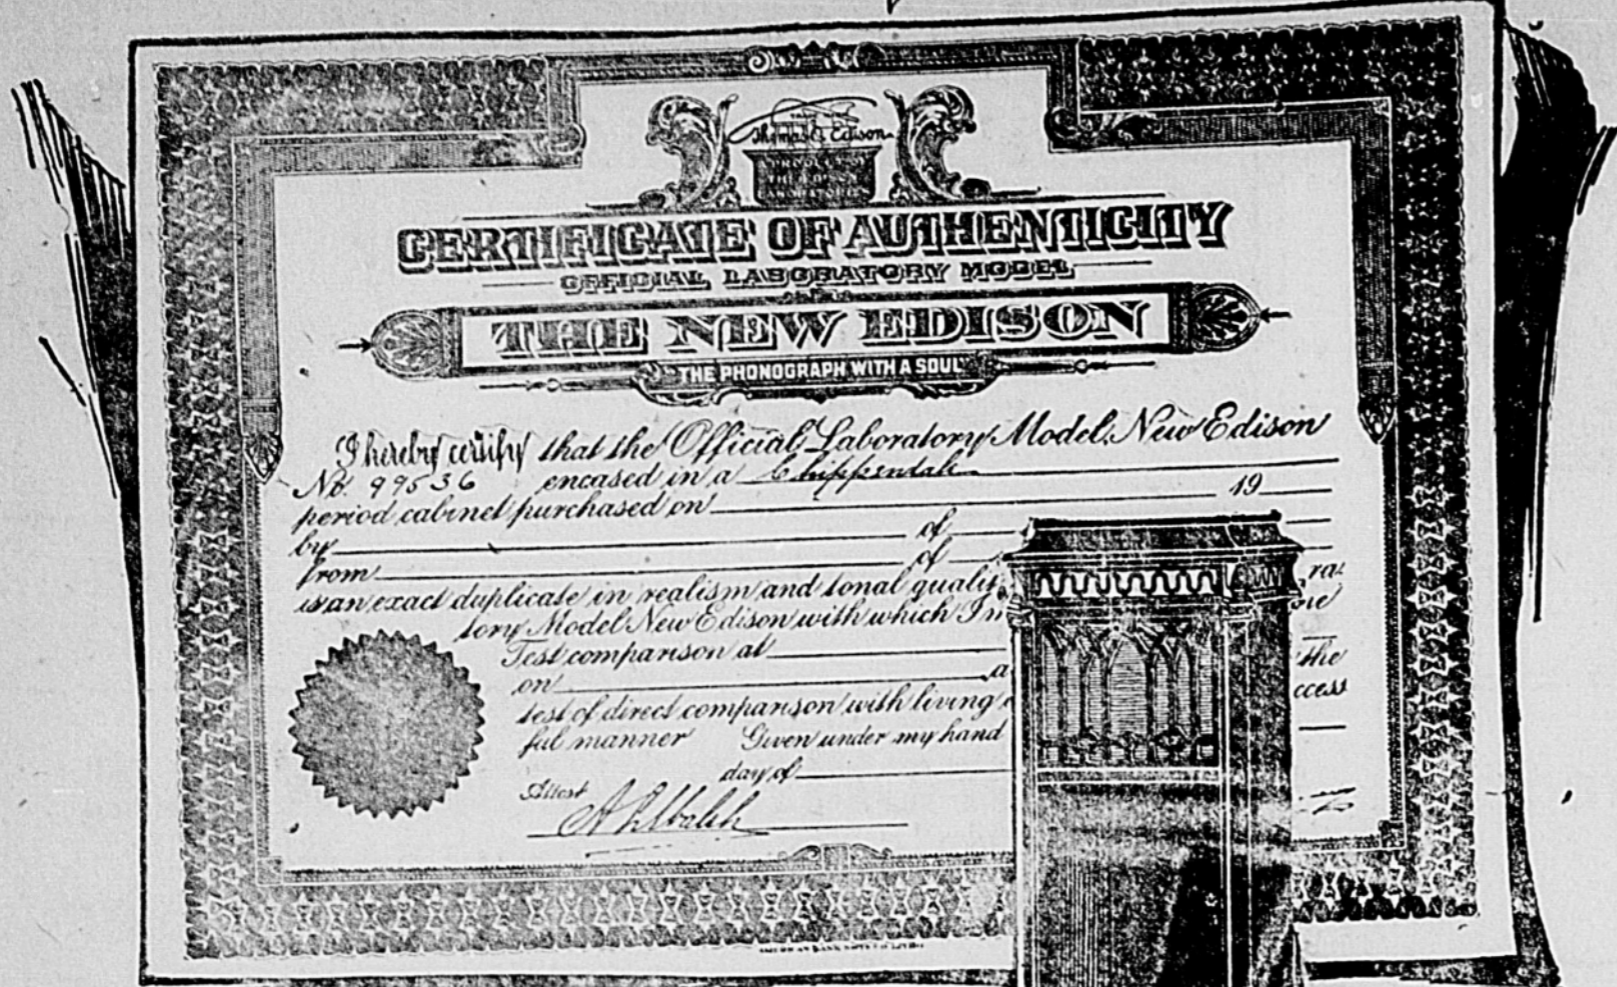 Thomas A Edison
CERTIFICATE OF AUTHENTICITY
OFFICIAL LABORATORY MODEL
THE NEW EDISON
"THE PHONOGRAPH WITH A SOUL"
I hereby certify that the Official Laboratory Model New Edison
No. 99536 encased in a Chippendale
period cabinet purchased on 19
by of
from of
is an exact duplicate in realism and tonal quali
tory Model New Edison with which I
Test comparison at
on a the
test of direct comparison with living ccess
ful manner Given under my hand
day of
Attest